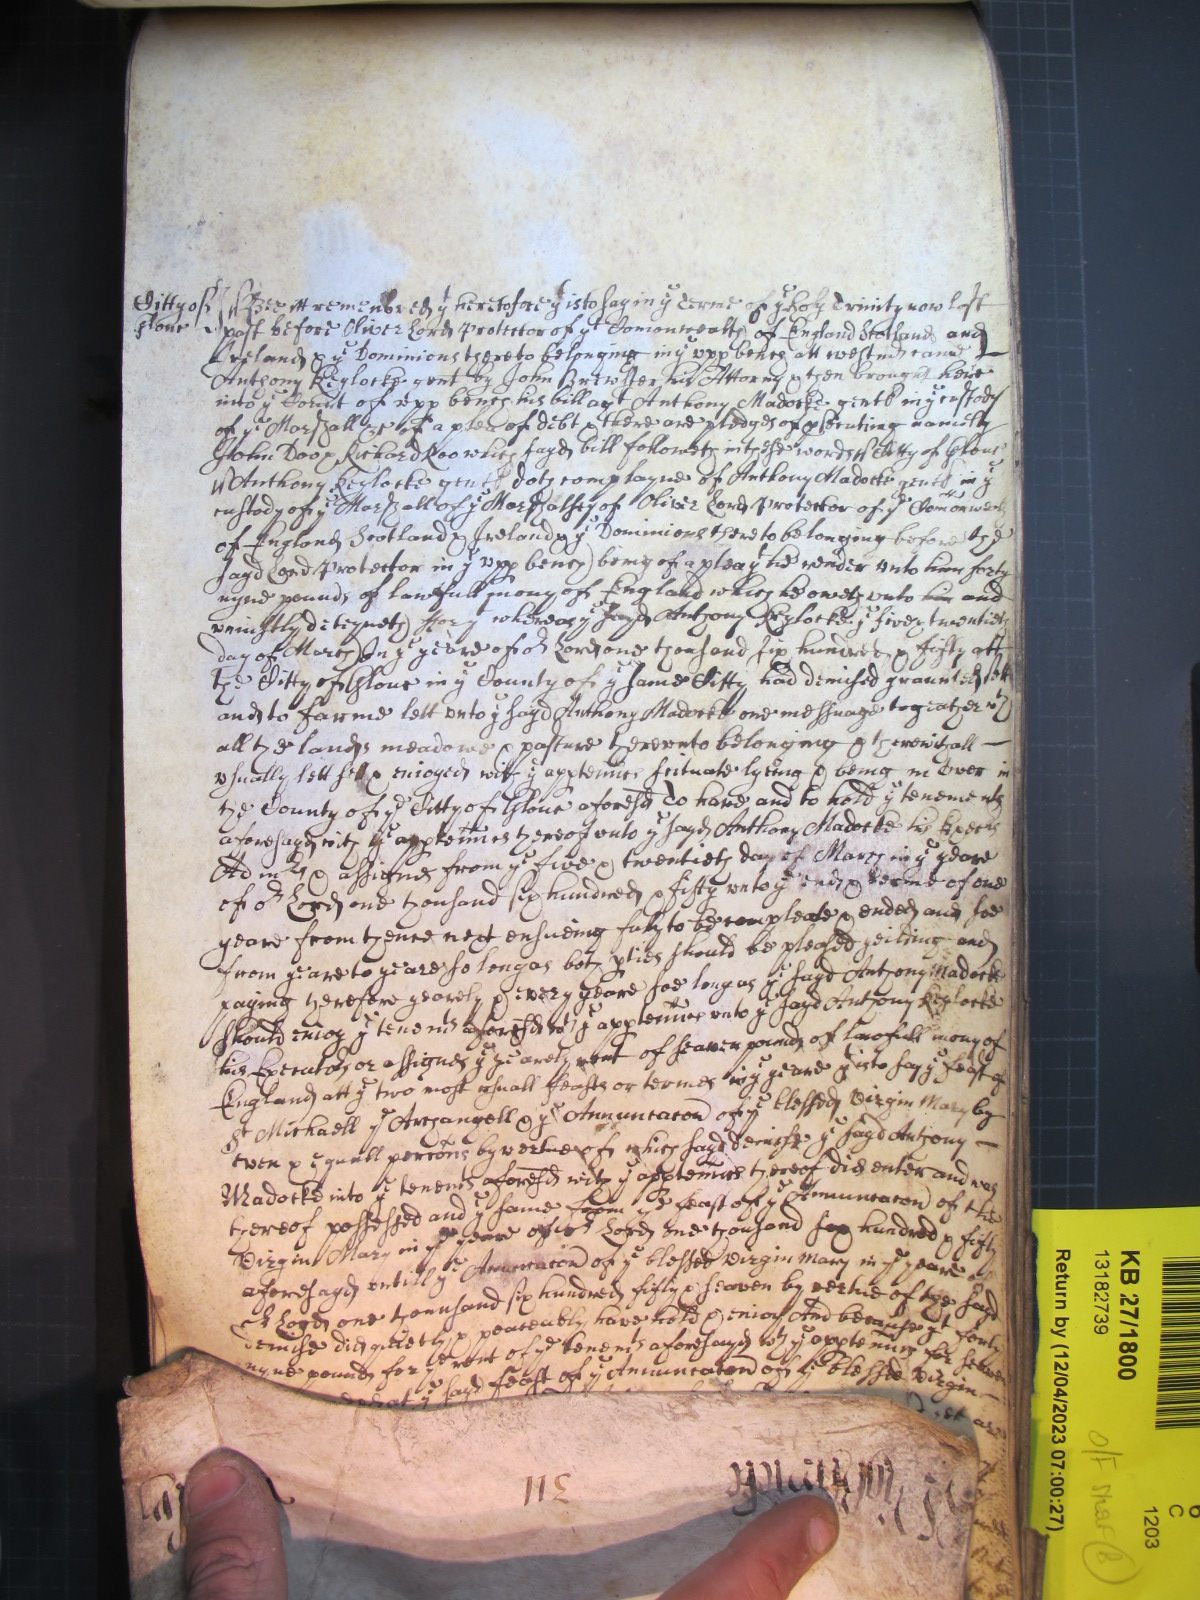 Citty of
Glouc
Bee itt remembred yt heretofore yt is to say in ye terme of ye holy Trinity now last
past before Oliver Lord Protector of ye Comonwealth of England Scotland and
Ireland & ye Dominions thereto belonging in ye upp bench att westm came
Anthony Keylocke gent by John Brewster his Attorny & then brought here
into ye Court of upp bench his bill agt Anthony Madocke gent in ye custody
of ye Marshall &c of a plea of debt & there are pledges of psecuting namely
John Doo & Richard Roo which sayd bill followeth in these words ss Citty of Glouc
ss Anthony Keylocke gent doth complayne of Anthony Madocke gent in ye
custody of ye Marshall of ye Marshalsey of Oliver Lord Protector of ye Comonwealth
of England Scotland & Ireland & ye Dominions thereto belonging before the
sayd Lord Protector in ye upp bench being of a plea yt he render unto him forty
nyne pounds of lawfull mony of England which he oweth unto him and
uniustly deteyneth For yt whereas ye sayd Anthony Keylocke ye five & twentieth
day of March In ye yeare of or Lord one thousand six hundred & fifty att
the Citty of Glouc in ye County of ye same Citty had demised graunted sett
and to farme lett unto ye sayd Anthony Madocke one messuage togeather wth
all the lands meadowe & pasture thereunto belonging & therewithall
usually lett sett & enioyed with ye apptennces scituate lyeing & being in Over in
the County of ye Citty of Glouc aforesd To have and to hold ye tenements
aforesayd with ye apptennces thereof unto ye sayd Anthony Madocke his Execrs
Adminrs & assignes from ye five & twentieth day of March in ye yeare
of or Lord one thousand six hundred & fifty unto ye end & terme of one
yeare from thence next ensueing fully to be compleate & ended and soe
from yeare to yeare so long as both pties should be pleased yeilding and
paying therefore yearely & every yeare soe long as ye sayd Anthony Madocke
should enioy ye tenemts aforesd wth ye apptennces unto ye sayd Anthony Keylocke
his Executors or assignes ye yearely rent of seaven pounds of lawfull mony of
England att ye two most usuall feasts or termes in ye yeare yt is to say ye feast of
St Michaell ye Archangell & ye Annuncacon of ye blessed Virgin Mary by
even & equall portions by vertue of which sayd demise ye sayd Anthony
Madocke into ye tenemts aforesd with ye apptennces thereof did enter and was
thereof possessed and ye same from ye feast of ye Annuncacon of the
Virgin Mary in ye yeare of or Lord one thousand six hundred & fifty
aforesayd untill ye Annuncacon of ye blessed Virgin Mary in ye yeare of
or Lord one thousand six hundred fifty & seaven by vertue of the sayd
demise did quietly & peaceably have hold & enioy And because yt forty
nyne pounds for ye rent of ye tenemts aforesayd wth ye apptennces for seaven
att ye sayd feast of ye Annuncacon of ye blessed Virgin
113
KB 27/1800
13182739
Return by (12/04/2023 07:00:27)
6
C
1203